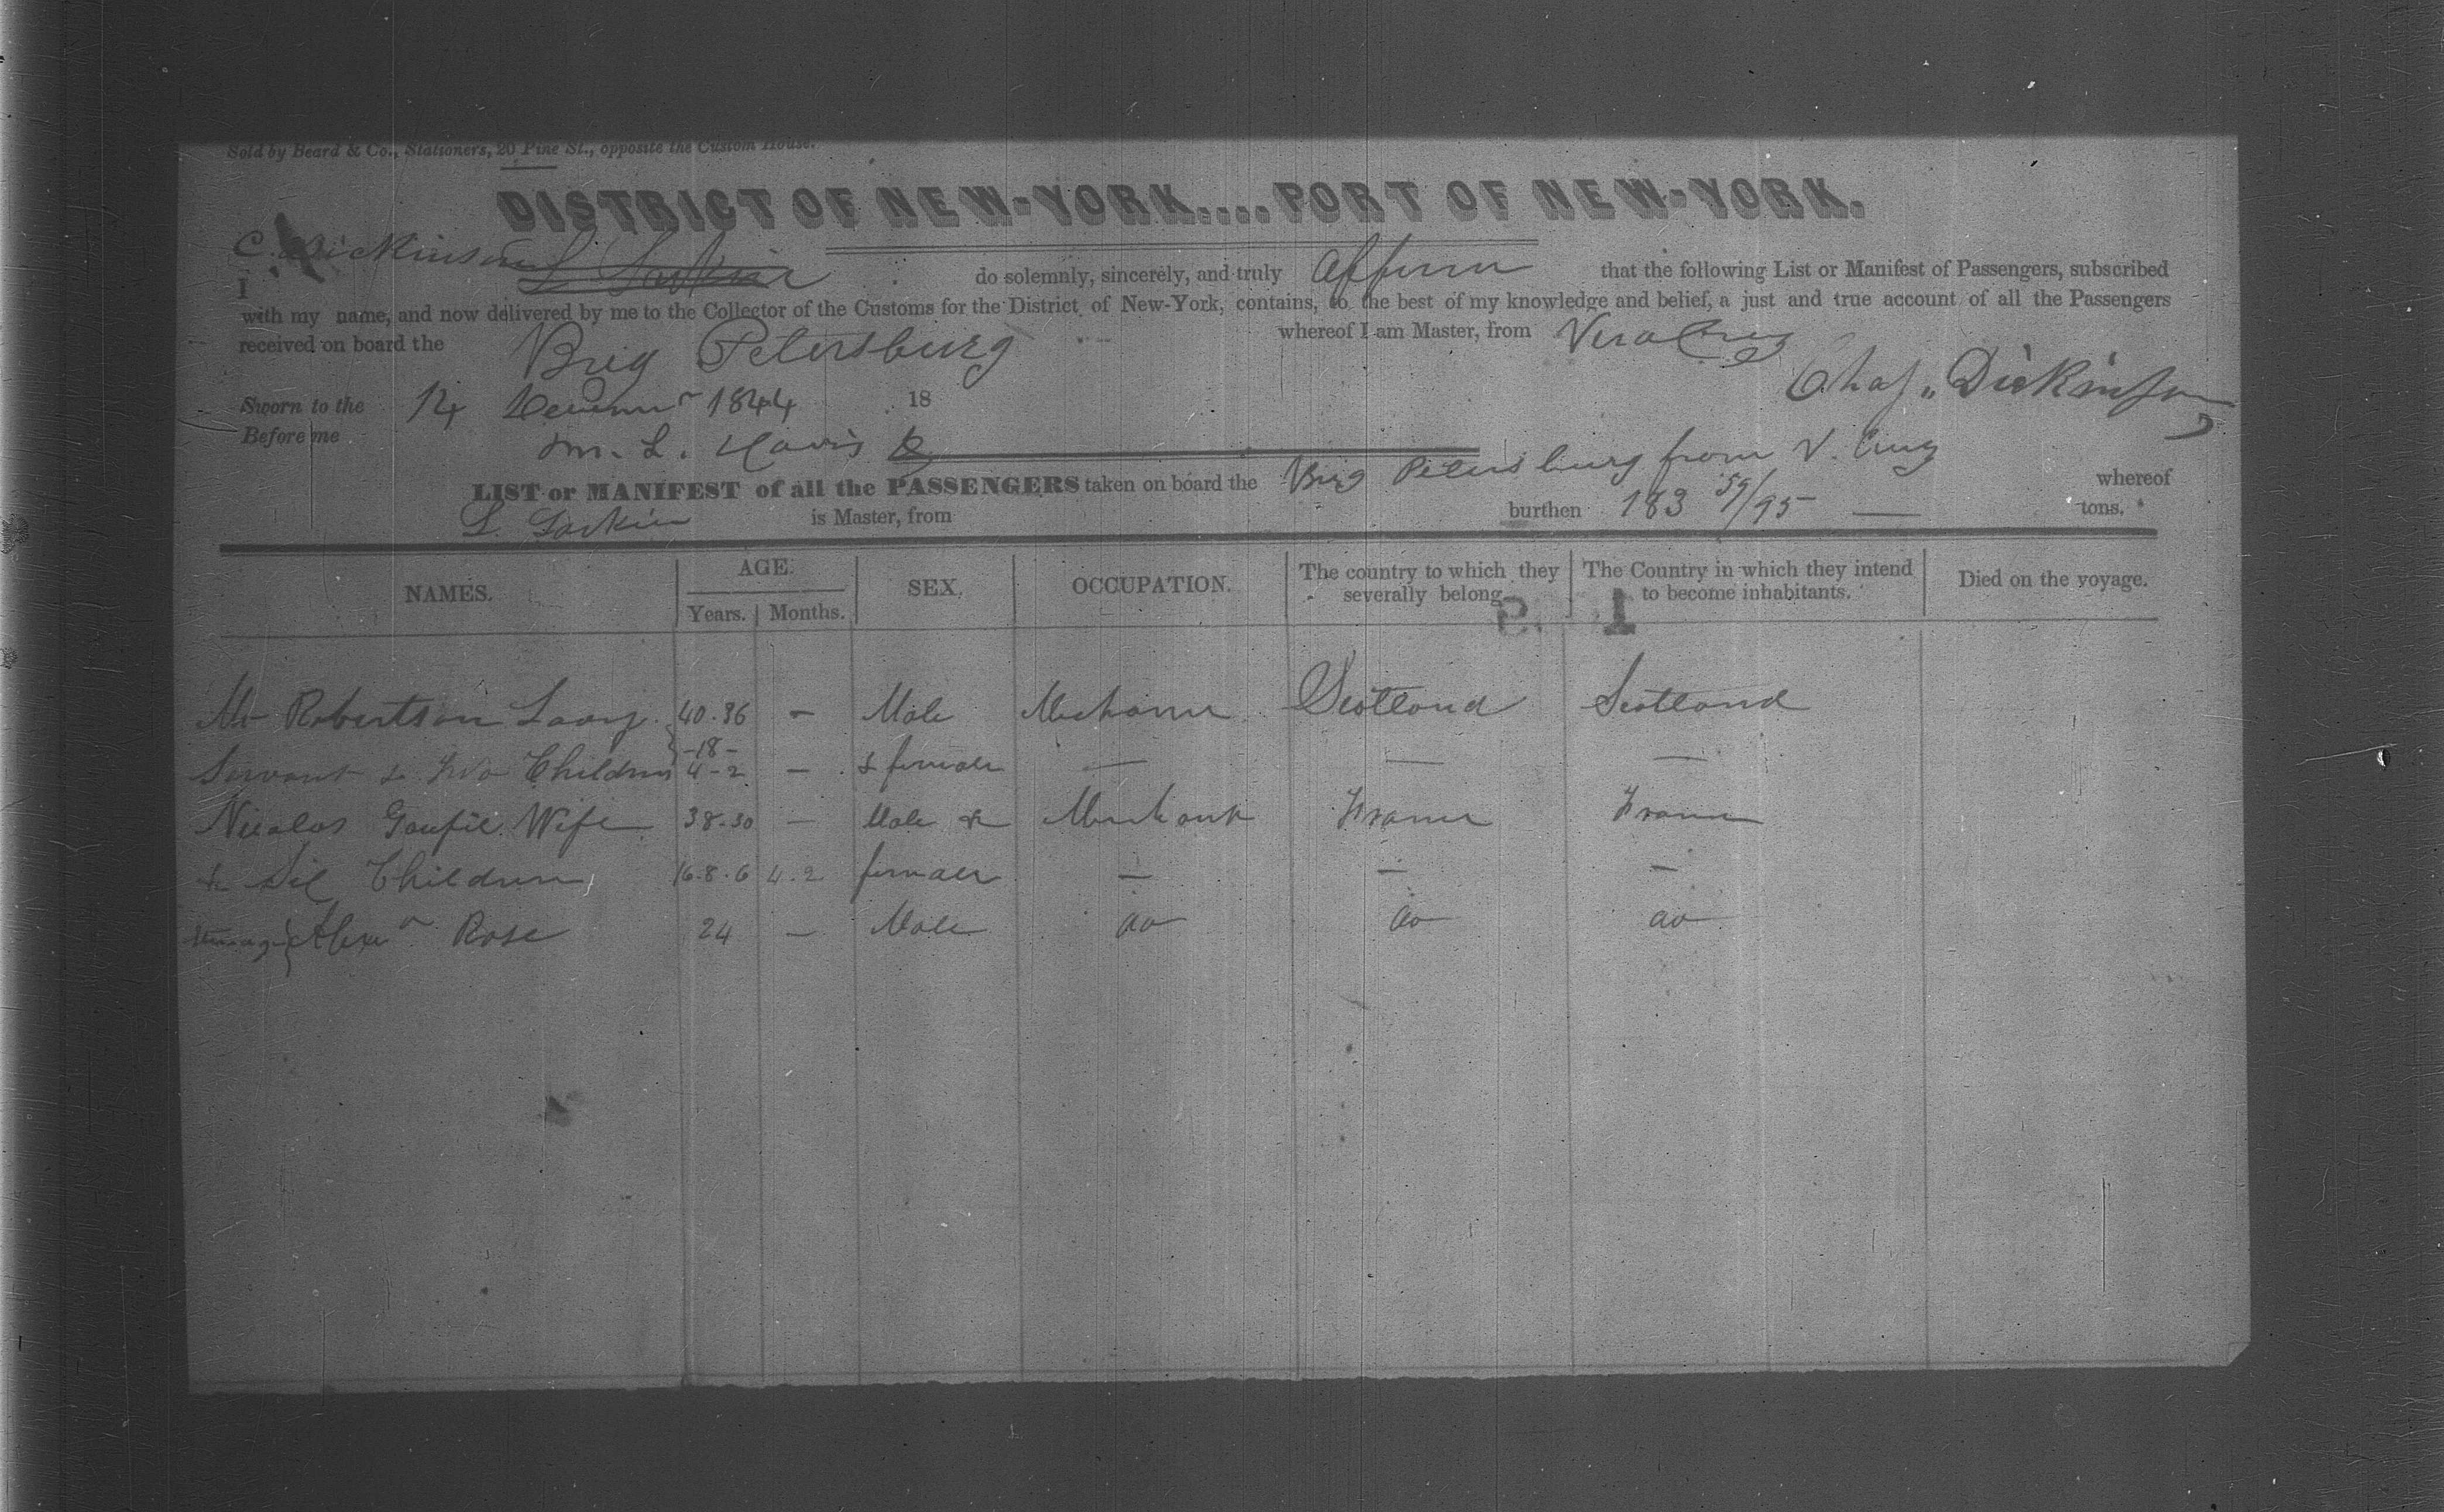 Sold by Beard & Co., Stationers, 20 Pine St., opposite the Custom House.
DISTRICT OF NEW-YORK....PORT OF NEW-YORK.
C. Dickinson
I do solemnly, sincerely, and truly affirm that the following List or Manifest of Passengers, subscribed
with my name, and now delivered by me to the Collector of the Customs for the District of New-York, contains, to the best of my knowledge and belief, a just and true account of all the Passengers
received on board the Brig Petersburg whereof I am Master, from Vera Cruz
Chas. Dickinson
Sworn to the 14 December 1844 18
Before me M. L. Davis
LIST or MANIFEST of all the PASSENGERS taken on board the Brig Petersburg from V. Cruz whereof
L. Larkin is Master, from burthen 183 59/95 — tons.
NAMES. AGE. SEX. OCCUPATION. The country to which they severally belong. The Country in which they intend to become inhabitants. Died on the voyage.
Years. Months.
Mr Robertson 40.36 - Male Scotland Scotland
-18-
Servant & two Children 4-2 - & female — — —
Nicolas Wife 38.30 — Male & Merchant France France
& Children 16.8.6 4.2 female — — —
Alexr Rose 24 — Male do do do